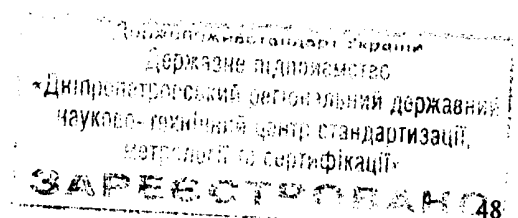 Держспоживстандарт України
Державне підприємство
«Дніпропетровський регіональний державний
науково-технічний центр стандартизації,
метрології та сертифікації»
ЗАРЕЄСТРОВАНО
48